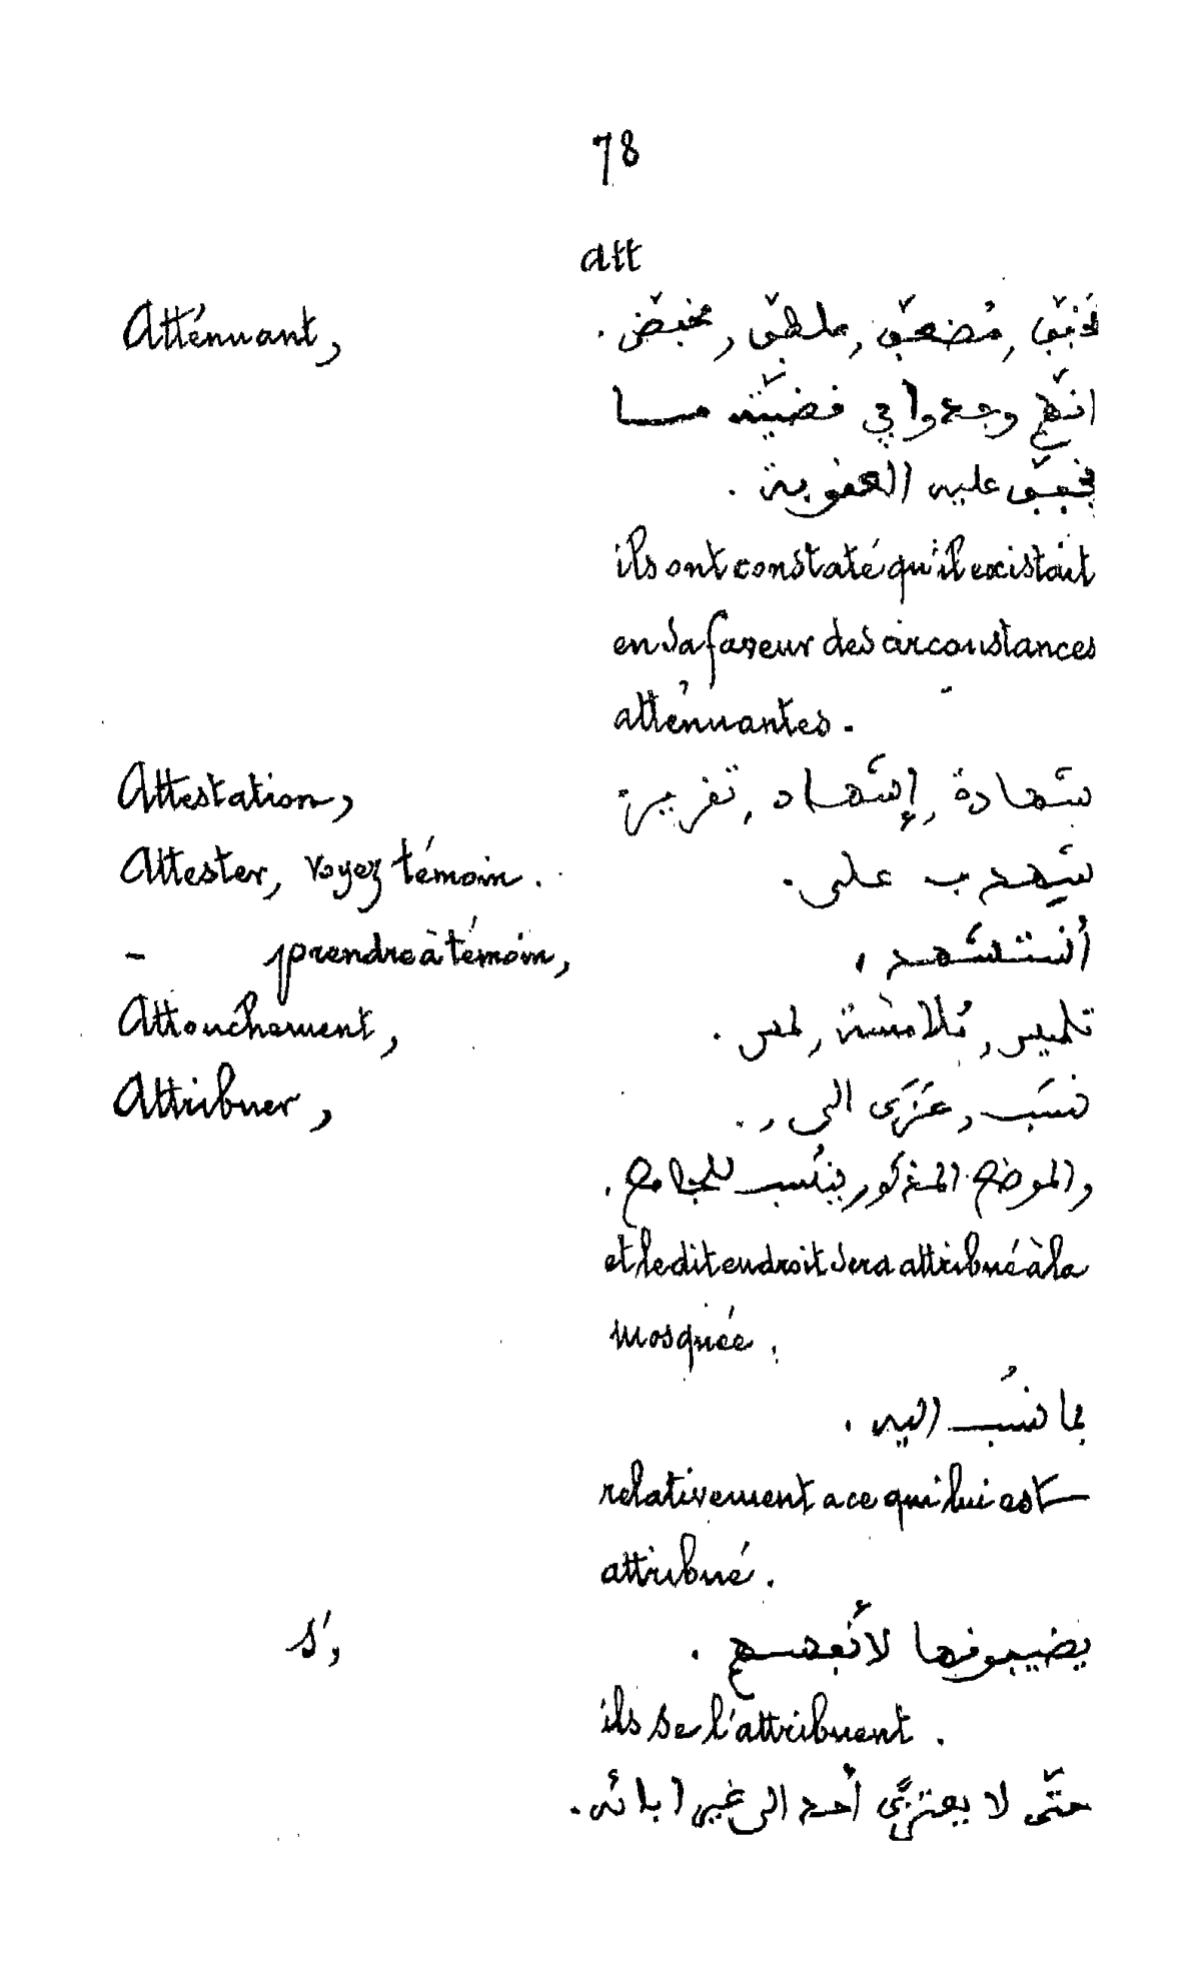 78
att
Atténuant, مُخَفِّف, مُضَعِّف, ملطِّف, مخفِّض.
انّهم وجدوا في قضيّته مـــا
يخفِّف عليه العقوبة.
ils ont constaté qu'il existait
en sa faveur des circonstances
atténuantes.
Attestation, شَهادة, إِشْهاد, تقرير.
Attester, voyez témoin. شَهِد ب على.
- prendre à témoin, أستشهد,
Attouchement, تلميس, مُلامَسة, لمس.
Attribuer, نسَب, عَزَى الى.
والموضع المذكور ينسَب للجامع.
et le dit endroit sera attribué à la
mosquée.
بما نسُب اليه.
relativement a ce qui lui est
attribué.
s', يضيفونها لأنفسهم.
ils se l'attribuent.
حتّى لا يعتزي أحد الى غير ابائه.